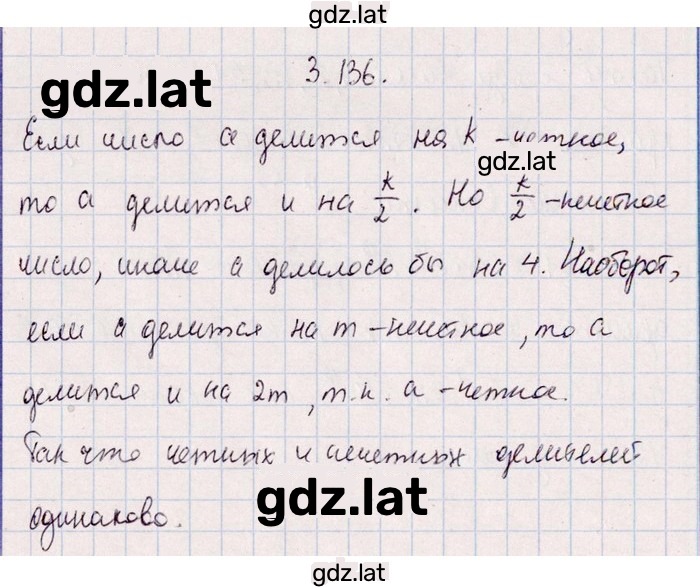 gdz.lat
3.136.
gdz.lat
Если число a делится на k -четное,
gdz.lat
то a делится и на k/2. Но k/2 -нечетное
число, иначе a делилось бы на 4. Наоборот,
если a делится на m -нечетное, то a
делится и на 2m, т.к. a -четное.
Так что четных и нечетных делителей
gdz.lat
одинаково.
gdz.lat